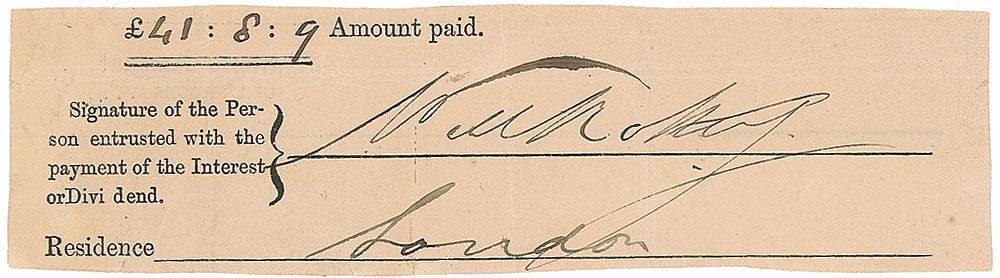 £41 : 8 : 9 Amount paid.
Signature of the Per-
son entrusted with the
payment of the Interest
orDivi dend.
Residence London